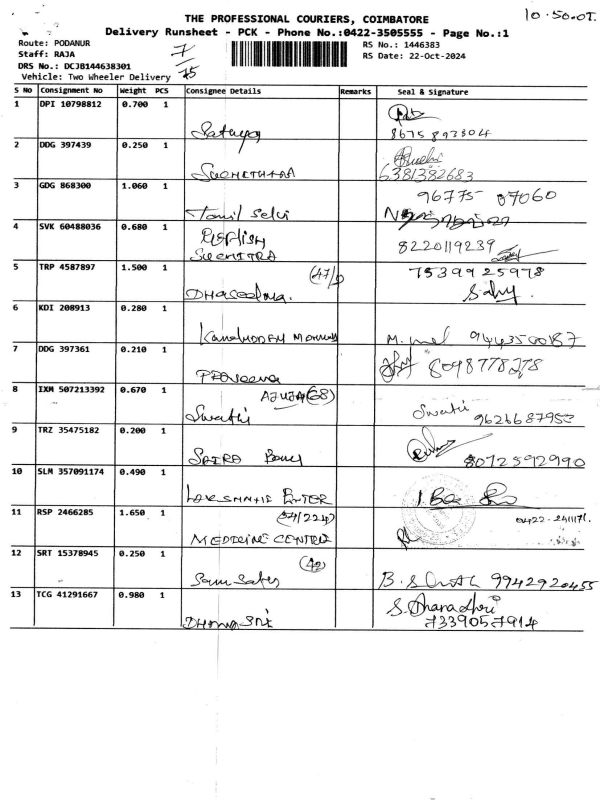 10.50.07.
THE PROFESSIONAL COURIERS, COIMBATORE
Delivery Runsheet - PCK - Phone No.:0422-3505555 - Page No.:1
Route: PODANUR
RS No.: 1446383
Staff: RAJA
RS Date: 22-Oct-2024
DRS No.: DCJB144638301
Vehicle: Two Wheeler Delivery
S No Consignment No Weight PCS Consignee Details Remarks Seal & Signature
1 DPI 10798812 0.700 1
8675893304
2 DDG 397439 0.250 1
SUCHETHRA 6381382683
3 GDG 868300 1.060 1
Tamil Selvi 96775 07060
4 SVK 60488036 0.680 1
SUCHITRA 8220119239
5 TRP 4587897 1.500 1 (47/0) 7539925978
6 KDI 208913 0.280 1
9443500187
7 DDG 397361 0.210 1
Praveena 8098778278
8 IXM 507213392 0.670 1 AJUJA (68)
Swathi Swathi 9626687953
9 TRZ 35475182 0.200 1
SAIRA Banu 8072592990
10 SLM 357091174 0.490 1
11 RSP 2466285 1.650 1 0422-2411171
MEDICINE CENTRE
12 SRT 15378945 0.250 1 (42)
9942920455
13 TCG 41291667 0.980 1
7339057914